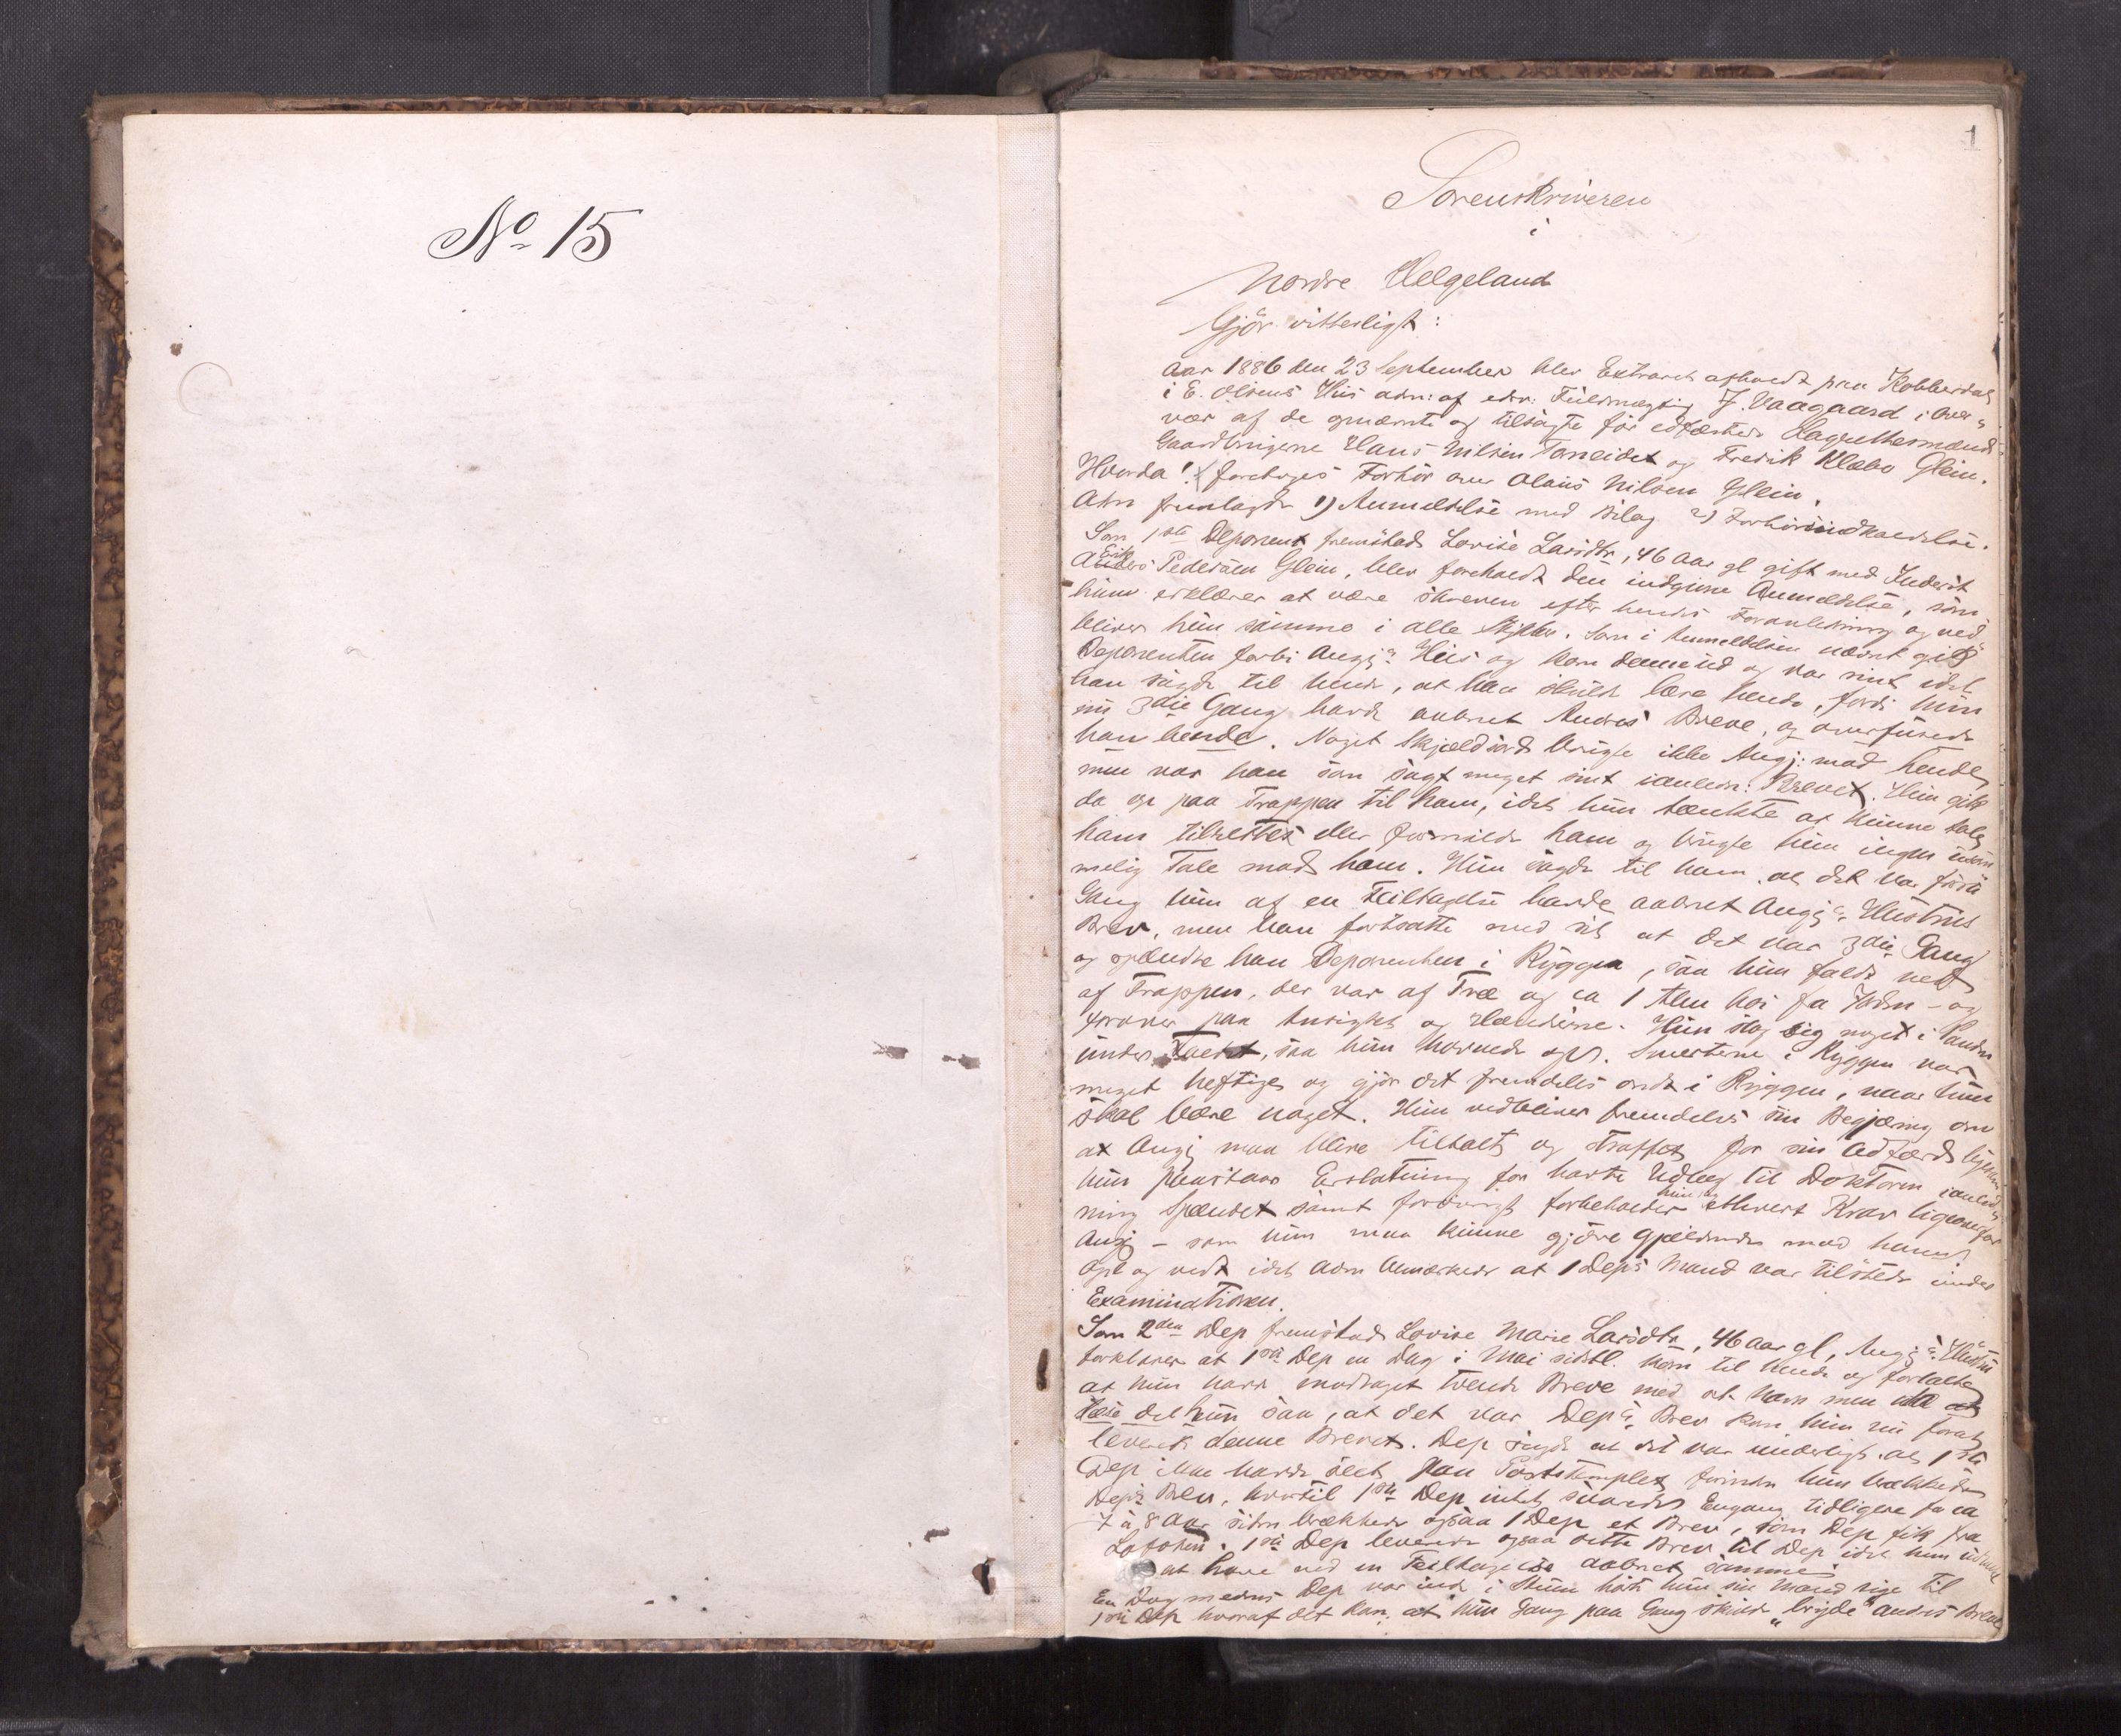 No 15
1
Sorenskriveren
i
Nordre Helgeland
Gjör vitterligt:
Aar 1886 den 23 September blev Extraret afholdt paa Kobberdal
i E. Olsens Hus adm: af edsv: Fuldmægtig J. Vaagaard i Over-
vær af de opnævnte og tilsagte før edfæstede Lagrettesmænd
Gaardbrugerne Hans Nilsen Taneidet og Fredrik Klæbo Glein.
Hvorda! foretoges Forhör over Olaus Nilsen Glein.
Adm fremlagde 1) Anmeldelse med Bilag 2) Forhörsindkaldelse.
Som 1ste Deponent fremstod Lovise Larsdtr, 46 Aar gl gift med Inderst
Erik Pedersen Glein, blev foreholdt den indgivne Anmeldelse, som
hun erklærer at være skreven efter hendes Foranledning og ved-
bliver hun samme i alle Stykker. Som i Anmeldelsen nævnt gik
Deponenten forbi Angj:s Hus og kom denne ud og var sint idet
han sagde til hende, at han skulde lære hende, fordi hun
nu 3die Gang havde aabnet Andres Breve, og overfusede
han hende. Noget Skjældsord brugte ikke Angj: mod hende,
men var han som sagt meget sint ianledn: Brevet. Hun gik
da op paa Trappen til ham, idet hun tænkte at kunne tale
ham tilrettes eller formilde ham og brugte hun ingen usöm-
melig Tale mod ham. Hun sagde til ham at det var förste
Gang hun af en Feiltagelse havde aabnet Angj:s Hustrus
Brev, men han fortsatte med sit at det var 3die Gang
og spændte han Deponenten i Ryggen, saa hun faldt ned
af Trappen, der var af Træ og ca 1 Alen höi fra Jorden - og
forover paa Ansigtet og Hænderne. Hun slog sig noget i Panden
under Faldet, saa hun hovnede op. Smerterne i Ryggen var
meget heftige og gjör det fremdeles ondt i Ryggen, naar hun
skal bære noget. Hun vedbliver fremdeles sin Begjæring om
at Angj maa blive tiltalt og straffet for sin Adfærd ligesom
hun paastaar Erstatning for havte Udlæg til Doktoren ianled-
ning Spændet samt forövrigt forbeholder hun sig ethvert Krav ligeoverfor
Angj - som hun maa kunne gjöre gjældende mod ham
Opl og vedt idet Adm bemærkede at 1 Dep's Mand var tilstede under
Examinationen.
Som 2den Dep fremstod Lovise Marie Larsdtr, 46 Aar gl, Angj:s Hustru
forklarer at 1ste Dep en Dag i Mai sidstl. kom til hende og fortalte
at hun havde modtaget tvende Breve med et Navn men da
hun saa, at det var Dep's Brev kom hun nu for at
levere denne Brevet. Dep sagde at det var underligt at 1ste
Dep ikke havde seet paa Poststemplet forinden hun brækkede
Dep's Brev, hvortil 1ste Dep intet svarede Engang tidligere for ca
7 à 8 Aar siden brækkede ogsaa 1 Dep et Brev, som Dep fik fra
Lofoten. 1ste Dep leverede ogsaa dette Brev til Dep idet hun
at have ved en Feiltagelse aabnet samme
En Dag medens Dep var inde i Stuen hörte hun sin Mand sige til
1ste Dep hvoraf det kan: at hun Gang paa Gang skulde "bryde" andres Breve